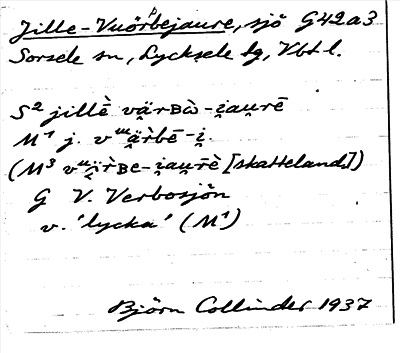 Jille-Vuörbejaure, sjö G42a3
Sorsele sn, Lycksele lg, Vbtl.
S² jillē vä̯rʙὼ-i̯au̯rē
M¹ j. vᵚä̯rbē-i̯.
(M³ vᵚi̯rʙe-i̯au̯rè [skatteland.])
G V. Verbosjön
v. 'lycka' (M¹)
Björn Collinder 1937